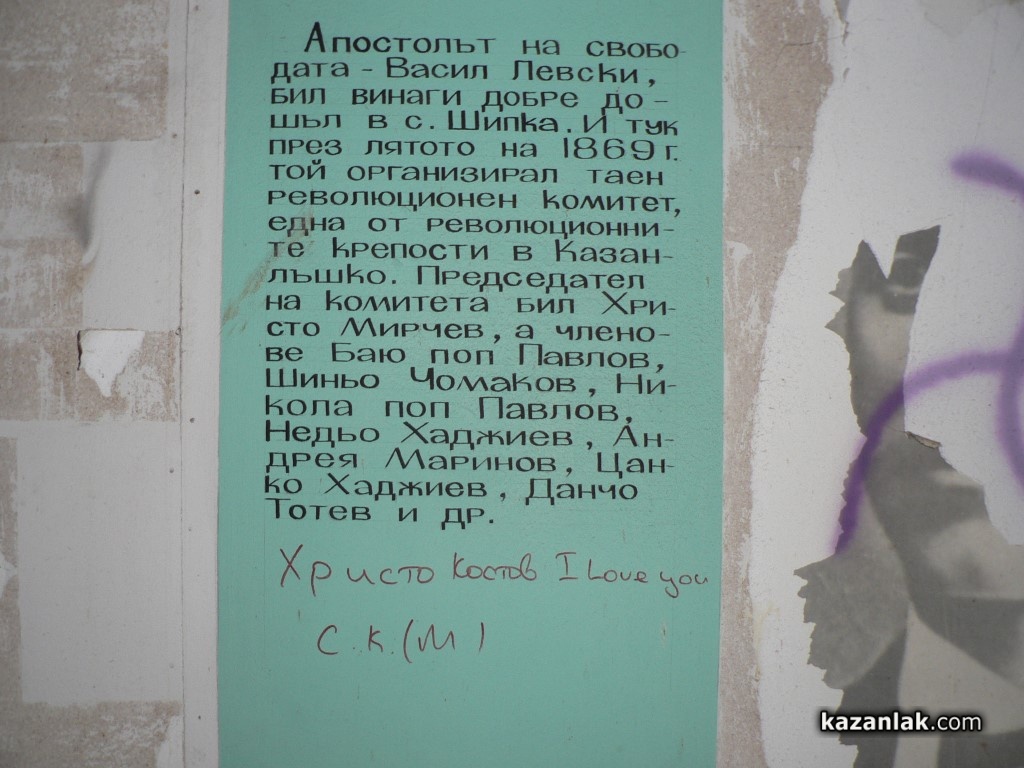 Апостолът на свобо-
дата - Васил Левски,
бил винаги добре до-
шъл в с. Шипка. И тук
през лятото на 1869 г.
той организирал таен
революционен комитет,
една от революционни-
те крепости в Казан-
лъшко. Председател
на комитета бил Хри-
сто Мирчев, а члено-
ве Баю поп Павлов,
Шиньо Чомаков, Ни-
кола поп Павлов,
Недьо Хаджиев, Ан-
дрея Маринов, Цан-
ко Хаджиев, Данчо
Тотев и др.
Христо Костов I Love you
С.К.(М)
kazanlak.com